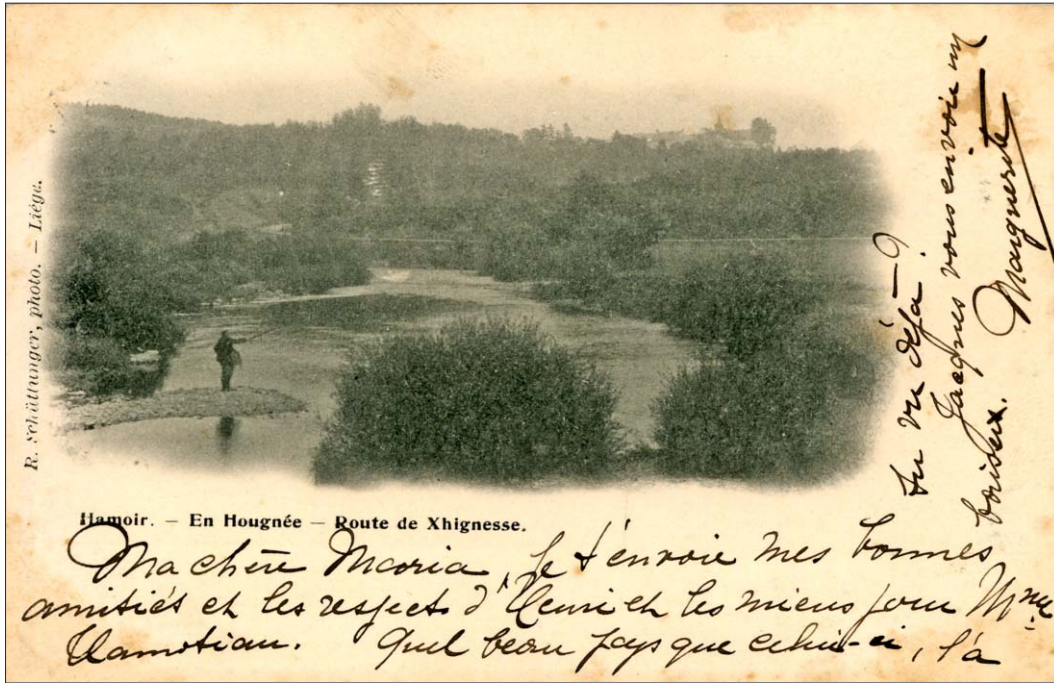 R. Schüttunger, photo. – Liége.
Hamoir. – En Hougnée – Route de Xhignesse.
Ma chère Maria, je t'envoie mes bonnes
amitiés et les respects d'Henri et les miens pour Mme
Quel beau pays que celui-ci, l'a
tu vu déjà – ?
Jacques vous envoie un
baiser.
Marguerite